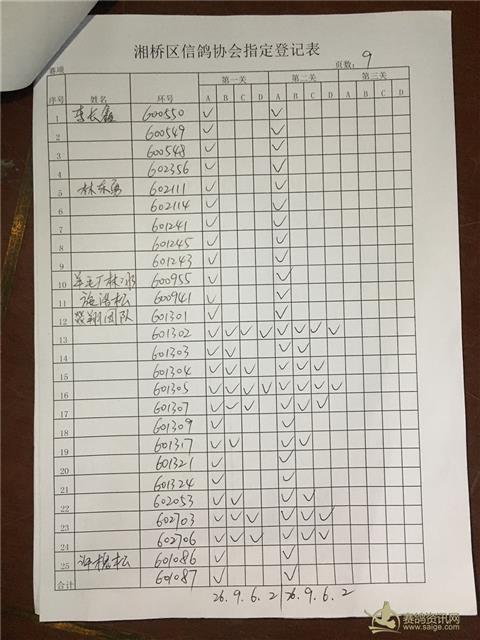 湘桥区信鸽协会指定登记表
赛项 页数: 9
第一关 第二关 第三关
序号 姓名 环号 A B C D A B C D A B C D
1 600550 ✓ ✓
2 600549 ✓ ✓
3 600548 ✓ ✓
4 602356 ✓ ✓
5 林东勇 602111 ✓ ✓
6 602114 ✓ ✓
7 601241 ✓ ✓
8 601245 ✓ ✓
9 601243 ✓ ✓
10 600955 ✓ ✓
11 施浩松 600941 ✓ ✓
12 翔团队 601301 ✓ ✓
13 601302 ✓ ✓ ✓ ✓ ✓ ✓ ✓ ✓
14 601303 ✓ ✓ ✓ ✓
15 601304 ✓ ✓ ✓ ✓ ✓ ✓
16 601305 ✓ ✓ ✓ ✓ ✓ ✓ ✓ ✓
17 601307 ✓ ✓ ✓ ✓ ✓ ✓
18 601309 ✓ ✓
19 601317 ✓ ✓ ✓ ✓
20 601321 ✓ ✓
21 601324 ✓ ✓
22 602053 ✓ ✓ ✓ ✓
23 602703 ✓ ✓ ✓ ✓ ✓ ✓
24 602706 ✓ ✓ ✓ ✓ ✓ ✓
25 许楷松 601086 ✓ ✓
合计 601087 ✓ ✓
26. 9. 6. 2 26. 9. 6. 2
赛鸽资讯网
www.saige.com